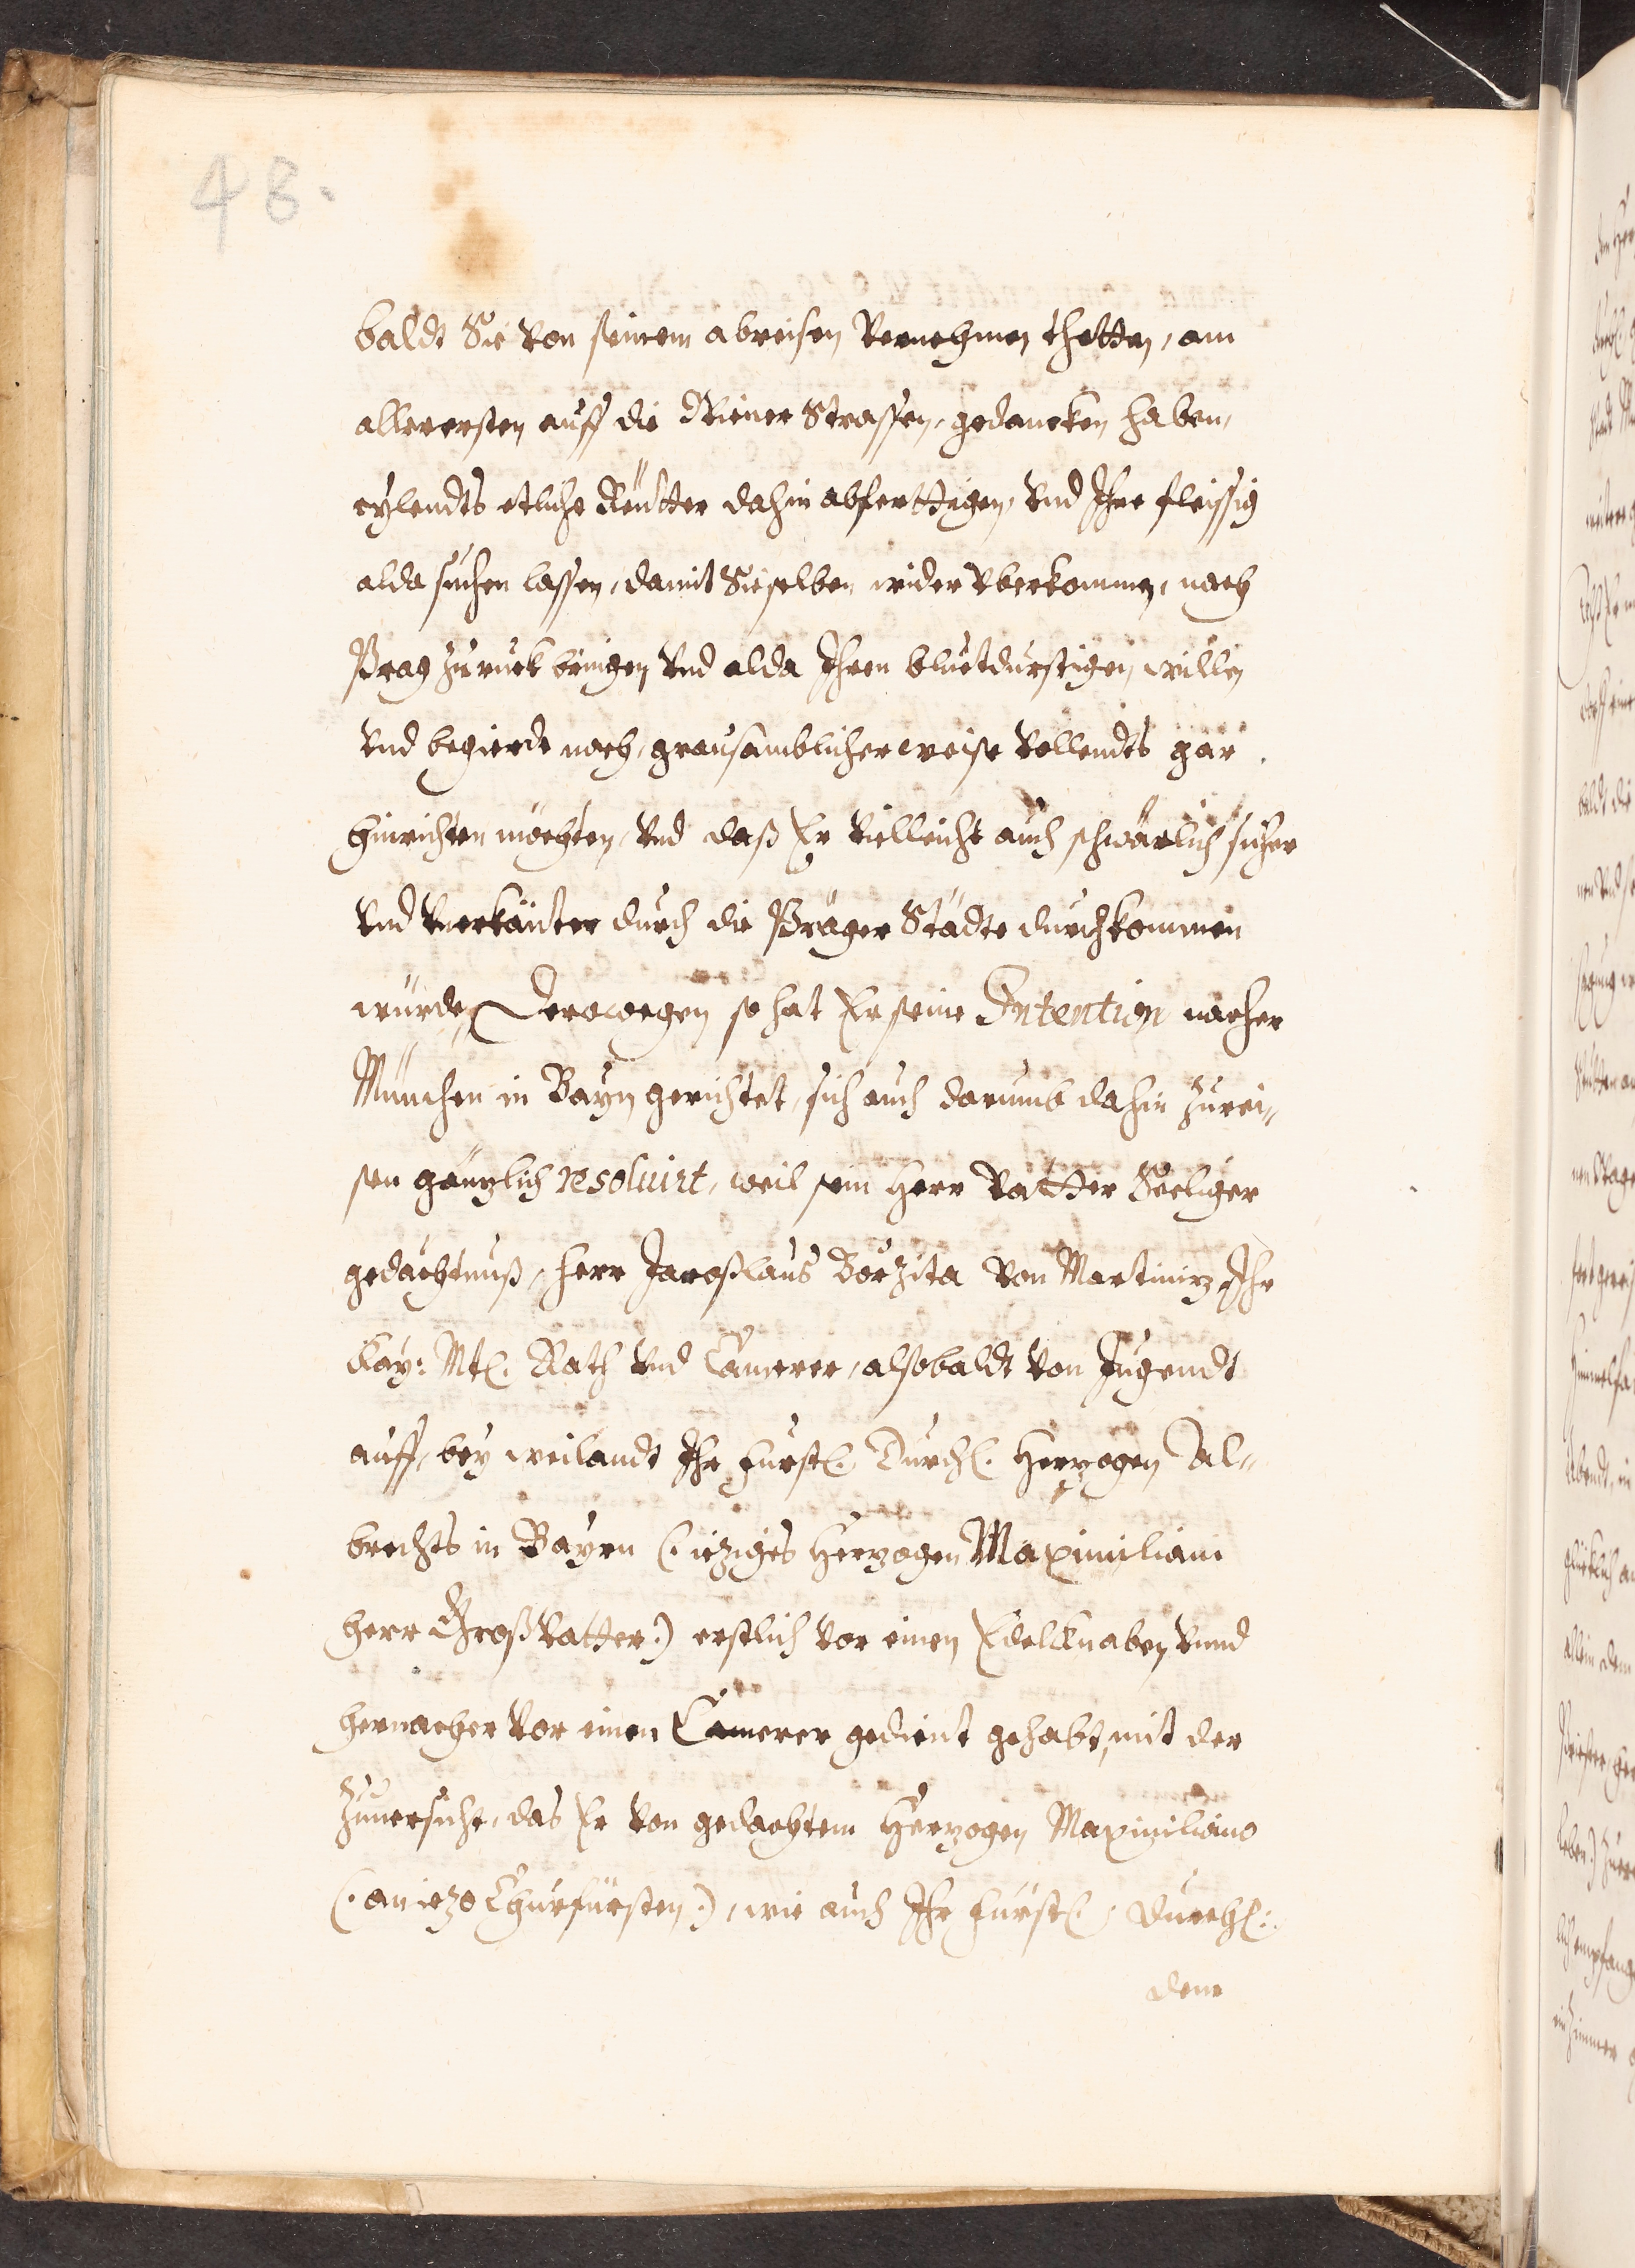 48.
baldt Sie von seinem abreisen vernehmen thetten, am
allerersten auff die Wiener Strassen, gedancken haben,
eylendts etliche Reütter dahin abferttigen, vnd Ihne fleissig
alda suchen lassen, damit Sieselben wider vberkommen, nach
Prag zuruck bringen vnd alda Ihren bluetdurstigen, willen
vnd begierde nach, grausamblicherweise vollendts gar
hinrichten möchten, vnd daß Er vielleicht auch schwärlich sicher
vnd vnerkänter durch die Präger Städte durchkommen
würde, Derowegen so hat Er seine Intention nacher
München in Bayrn gerichtet, sich auch darumb dahin zurei„
sen gäntzlich resoluirt, weil sein Herr Vatter Seeliger
gedächtnuß, Herr Jaroßlaus Borzita von Martinitz, Ihr
Kay: Mtl. Rath vnd Cämerer, alsobaldt von Jugendt
auff, bey weilandt Ihr Fürstl. Durchl. Hertzogen Al„
brechts in Bayrn (: ietziges Hertzogen Maximiliani
herr Großvatter:) erstlich vor einen Edelknaben vnnd
hernacher vor einen Cämerer gedient gehabt, mit der
Zuuersicht, das Er von gedachtem Hertzogen Maximiliano
(: an ietzo Churfürsten:), wie auch Ihr Fürstl: Durchl:
dem